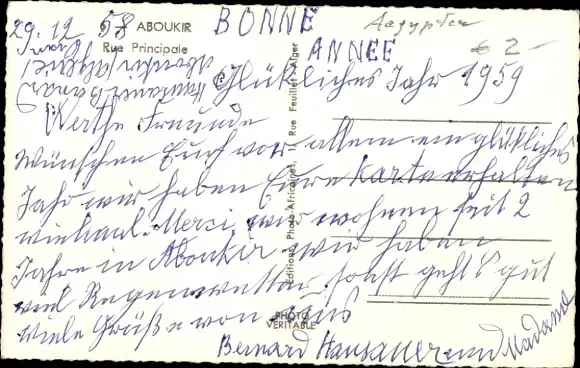 29.12 58 ABOUKIR BONNE
Aegypten
Rue Principale ANNEE € 2-
Glükliches Jahr 1959
Werthe Freunde
Wünschen Euch vor allem ein glükliches
Jahr wir haben Eure Karte erhalten
vielmal Mersi, wir wohnen seit 2
Jahre in Aboukir wir haben
viel Regenwetter sonst geht's gut
viele Grüße von uns
Bernard Hausauer und Madame
Editions Photo-Africaines, Rue Feuillet Alger
PHOTO
VERITABLE
Bernard
Aboukir (Algerie)